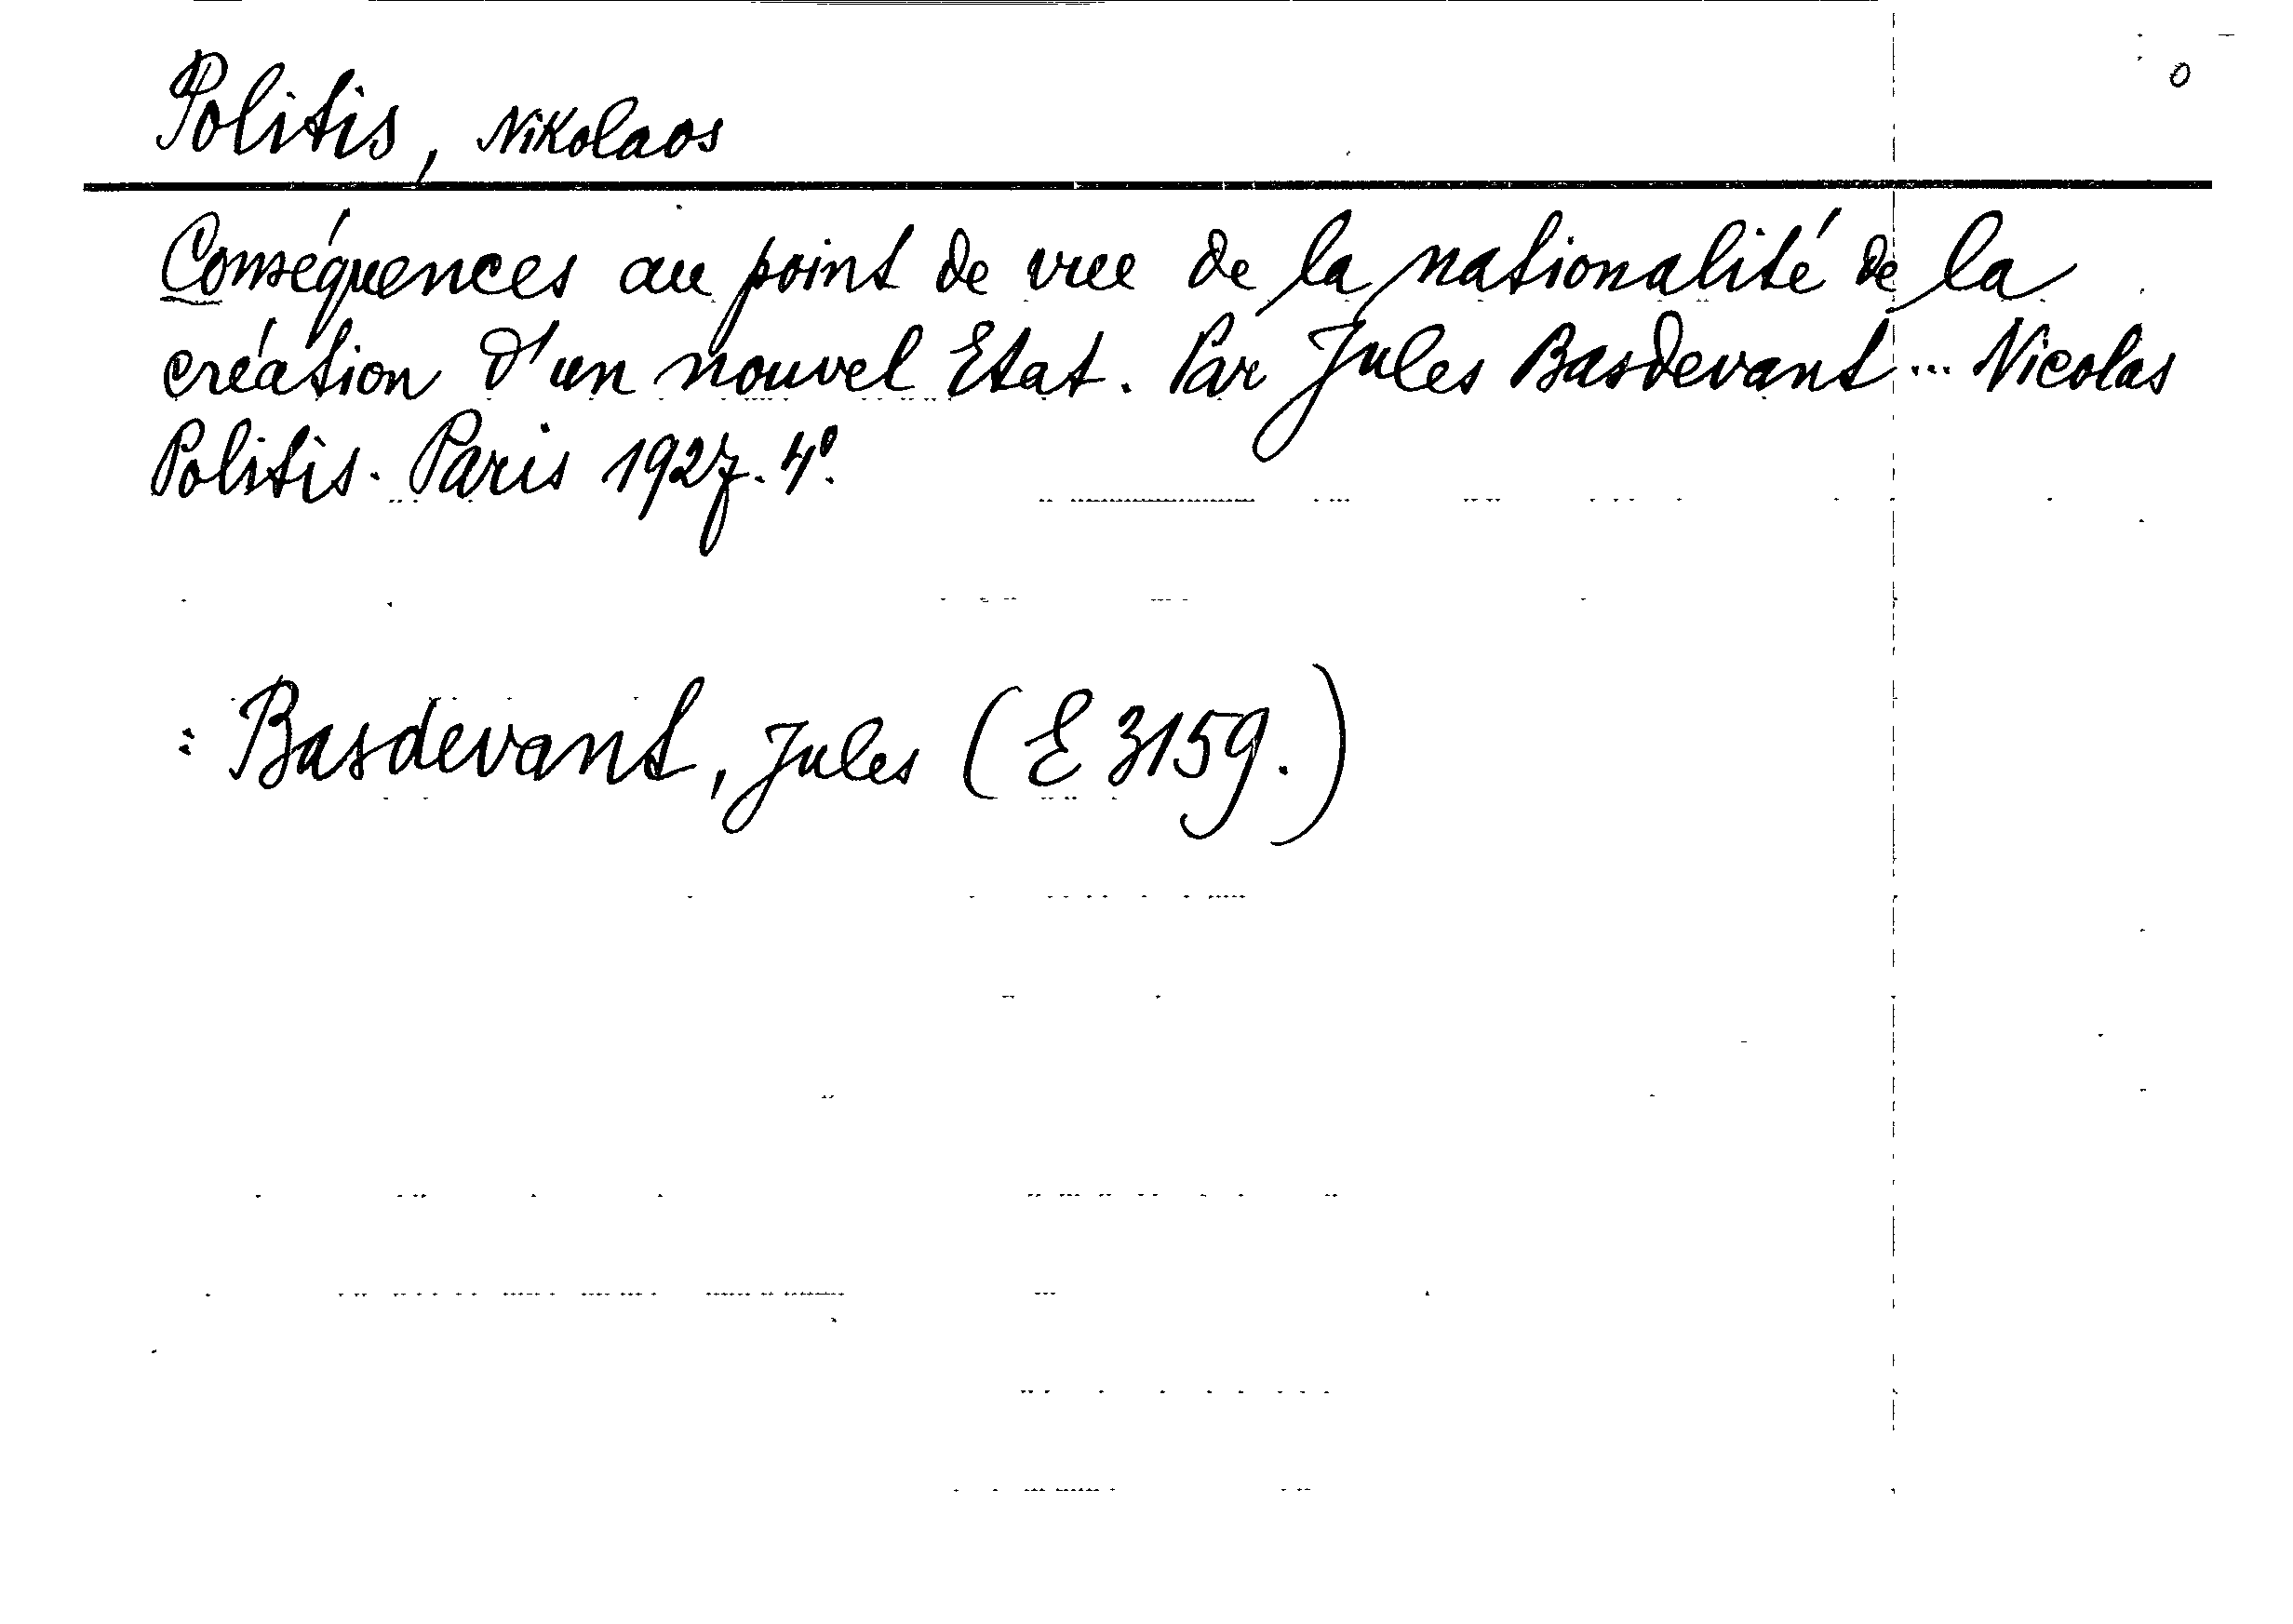 O
Politis, Nikolaos
Conséquences au point de vue de la nationalité de la
création d'un nouvel Etat. Par Jules Basdevant ... Nicolas
Politis. Paris 1927. 4°.
: Basdevant, Jules (E 3159.)